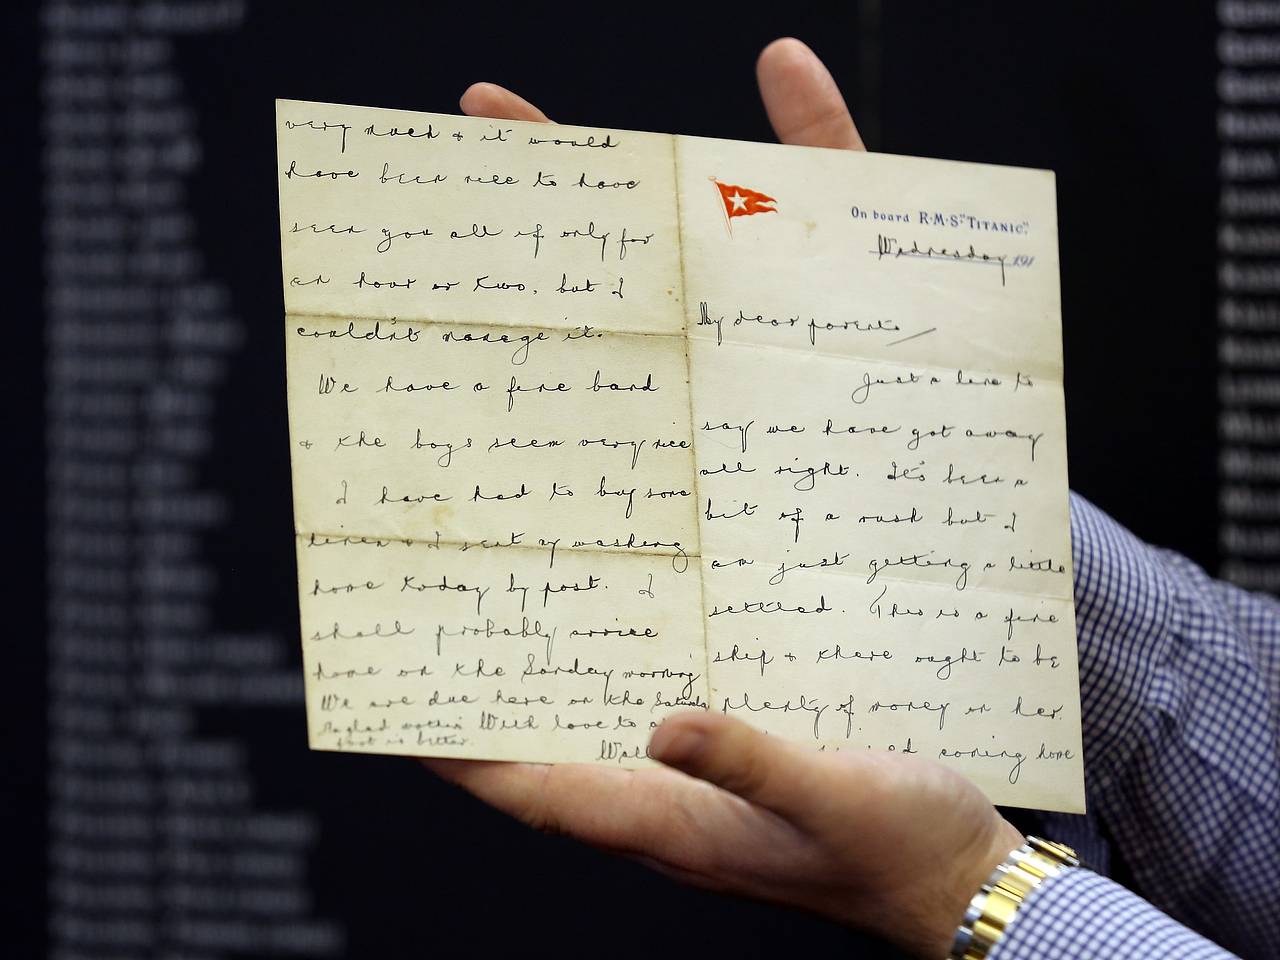 On board R·M·S "TITANIC".
Wednesday 191
My dear parents
Just a line to
say we have got away
all right. It's been a
bit of a rush but I
am just getting a little
settled. This is a fine
ship & there ought to be
plenty of money on her.
coming home
very much & it would
have been nice to have
seen you all if only for
an hour or two, but I
couldn't manage it.
We have a fine band
& the boys seem very nice
I have had to buy some
linen & I sent my washing
home today by post. I
shall probably arrive
home on the Sunday morning
We are due here on the
With love to
is better.